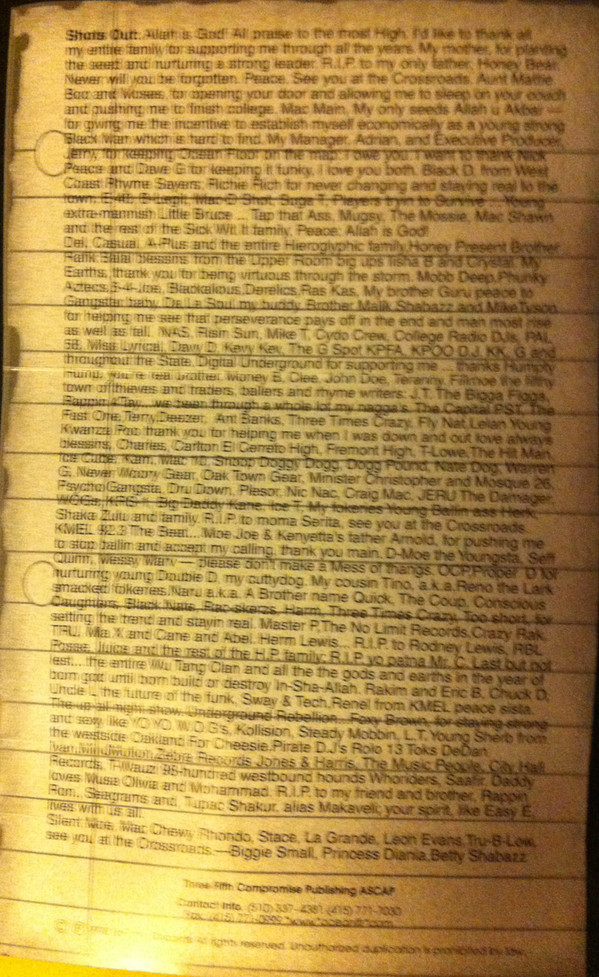 Shouts Out: Allah is God! All praise to the most High. I'd like to thank all
my entire family for supporting me through all the years. My mother, for planting
the seed and nurturing a strong leader. R.I.P. to my only father, Honey Bear.
Never will you be forgotten. Peace. See you at the Crossroads. Aunt Mattie
Boo and Moses, for opening your door and allowing me to sleep on your couch
and pushing me to finish college. Mac Main, My only seeds Allah u Akbar —
for giving me the incentive to establish myself economically as a young strong
Black Man which is hard to find. My Manager, Adrian, and Executive Producer,
Jerry, for keeping Ocean Floor on the map. I owe you. I want to thank Nick
Peace and Dave G for keeping it funky, I love you both. Black D. from West
Coast Rhyme Sayers, Richie Rich for never changing and staying real to the
town. E-40, B-Legit, Mac-D Shot, Suga T, Players tryin to Survive ... Young
extra-mannish Little Bruce ... Tap that Ass, Mugsy, The Mossie, Mac Shawn
and the rest of the Sick Wit It family, Peace. Allah is God!
Del, Casual, A-Plus and the entire Hieroglyphic family, Honey Present Brother
Rafik Bilal blessins from the Upper Room big ups Tisha B and Crystal. My
Earths, thank you for being virtuous through the storm. Mobb Deep, Phunky
Aztecs, 3-4-Joe, Blackalious, Derelics, Ras Kas, My brother Guru peace to
Gangstar baby, De La Soul my buddy, Brother Malik Shabazz and Mike Tyson
for helping me see that perseverance pays off in the end and man most rise
as well as fall. NAS, Risin Sun, Mike T, Cydo Crew, College Radio DJs, PAL
58, Miss Lyrical, Davy D, Kevy Kev, The G Spot KPFA, KPOO D.J. KK, G and
throughout the State. Digital Underground for supporting me ... thanks Humpty
Hump, you're real brother. Money B, Clee, John Doe, Teranny, Fillmoe the filthy
town of thieves and traders, ballers and rhyme writers: J.T. The Bigga Figga,
Rappin 4Tay... we bean through a whole lot my nagga's. The Capital PST, The
Fast One, Terry, Deezer, Ant Banks, Three Times Crazy, Fly Nat, Leian Young
Kwanza Poo thank you for helping me when I was down and out love always
blessins, Charles, Carlton El Cerrato High, Fremont High, T-Lowe, The Hit Man,
Ice Cube, Kam, Mac 10, Snoop Doggy Dogg, Dogg Pound, Nate Dog, Warren
G, Never Worry Gear, Oak Town Gear, Minister Christopher and Mosque 26,
Psycho Gangsta, Dru Down, Plesor, Nic Nac, Craig Mac, JERU The Damager,
WOGs, KRS-1, Big Daddy Kane, Ice T, My fokeries Young Ballin ass
Shaka Zulu and family. R.I.P. to moma Serita, see you at the Crossroads.
KMEL 92.3 The Beat... Moe Joe & Kenyetta's father Arnold, for pushing me
to stop ballin and accept my calling, thank you main. D-Moe the Youngsta, Seff
Quinn, Messy Marv — please don't make a Mess of thangs. OCP Proper D for
nurturing young Double D, my cuttydog. My cousin Tino, a.k.a. Reno the Lark
smacked fokeries, Naru a.k.a. A Brother name Quick, The Coup, Conscious
Daughters, Black Nate, Rap-skerzs, Harm, Three Times Crazy, Too short, for
setting the trend and stayin real. Master P, The No Limit Records, Crazy Rak,
TRU, Mia X and Cane and Abel. Herm Lewis... R.I.P. to Rodney Lewis, RBL
Posse, Juice and the rest of the H.P. family: R.I.P. yo patna Mr. C. Last but not
lest... the entire Wu Tang Clan and all the gods and earths in the year of
born god until born build or destroy In-Sha-Allah. Rakim and Eric B, Chuck D,
Uncle L, the future of the funk, Sway & Tech, Renel from KMEL peace sista.
The up all night show, Underground Rebellion... Foxy Brown, for staying strong
and sexy like YO YO, W.O.G's, Kollision, Steady Mobbin, L.T. Young Sherb from
the westside Oakland For Cheesie, Pirate D.J's Rolo 13 Toks DeDan
Ivan, Zebra Records Jones & Harris, The Music People, City Hall
Records, T-Wauz 98-hundred westbound hounds Whoriders, Saafir. Daddy
loves Musa Olivia and Mohammad. R.I.P. to my friend and brother, Rappin
Ron, Seagrams and Tupac Shakur, alias Makaveli; your spirit, like Easy E,
lives with us all.
Silent Moe, Mac Chewy Rhondo, Stace, La Grande, Leon Evans, Tru-B-Low,
see you at the Crossroads. —Biggie Small, Princess Diania, Betty Shabazz
Three Fifth Compromise Publishing ASCAP
Contact Info (510) 337-4361 (415) 771-7030
All rights reserved. Unauthorized duplication is prohibited by law.